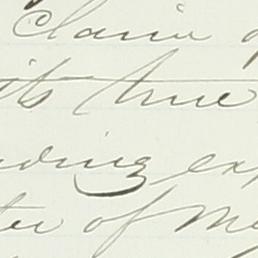 claim
its true
ding ex
ter of Me